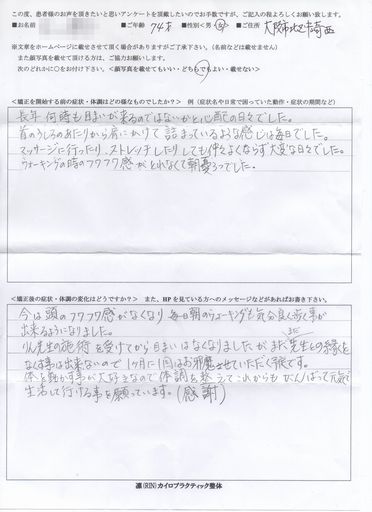 この度、患者様のお声を頂きたいと思いアンケートを頂戴したいのでお手数ですが、ご記入の程よろしくお願い致します。
■お名前 ■ご年齢 74才 ■性別<男・女> ■ご住所 大阪市北区
※文章をホームページに載せさせて頂く場合がありますがご了承下さい。(名前などは載せません)
また顔写真を載せて頂ける方は、ご協力お願いします。
次のどれかに○をお付け下さい。<顔写真を載せてもいい・どちらでもよい・載せない>
<矯正を開始する前の症状・体調はどの様なものでしたか?> 例(症状名や日常で困っていた動作・症状の期間など)
長年 何時も目まいが来るのではないかと心配の日々でした。
首のうしろのあたりから肩にかけて詰まっているような感じは毎日でした。
マッサージに行ったり、ストレッチしたりしても何もよくならず大変な日々でした。
ウォーキングの時のフワフワ感がとれなくて朝憂うつでした。
<矯正後の症状・体調の変化はどうですか?> また、HPを見ている方へのメッセージなどがあればお書き下さい。
今は頭のフワフワ感がなくなり毎日朝のウォーキングも気分良く歩く事が
出来るようになりました。
りん先生の施術を受けてから目まいはなくなりましたがまだ先生との縁を
なくす事は出来ないので1ヶ月に1回はお邪魔させていただく予定です。
体を動かす事が大好きなので体調を整えてこれからもがんばって元気で
生活して行ける事を願っています。(感謝)
凛(RIN)カイロプラクティック整体